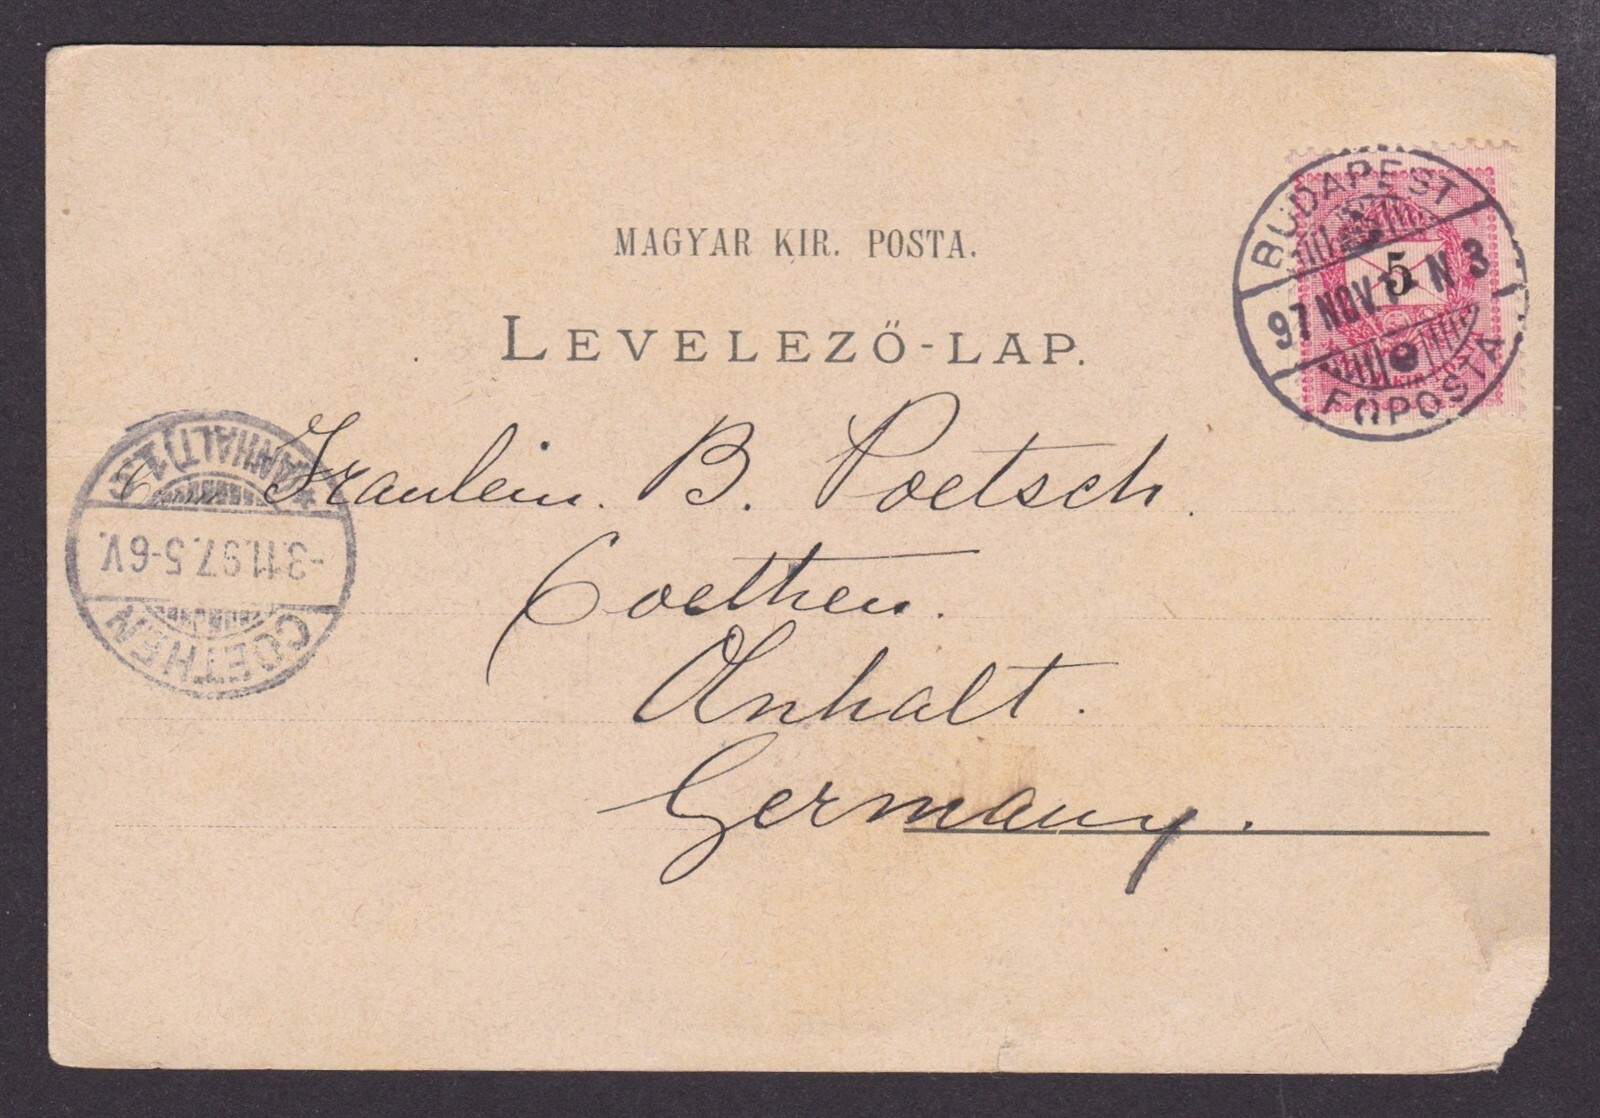 MAGYAR KIR. POSTA.
LEVELEZŐ-LAP.
BUDAPEST
5
97 NOV. N 3
FŐPOSTA
Fraulein. B. Poetsch.
Coethen.
Anhalt.
Germany.
COETHEN
-3.11.97.5-6V.
(ANHALT)